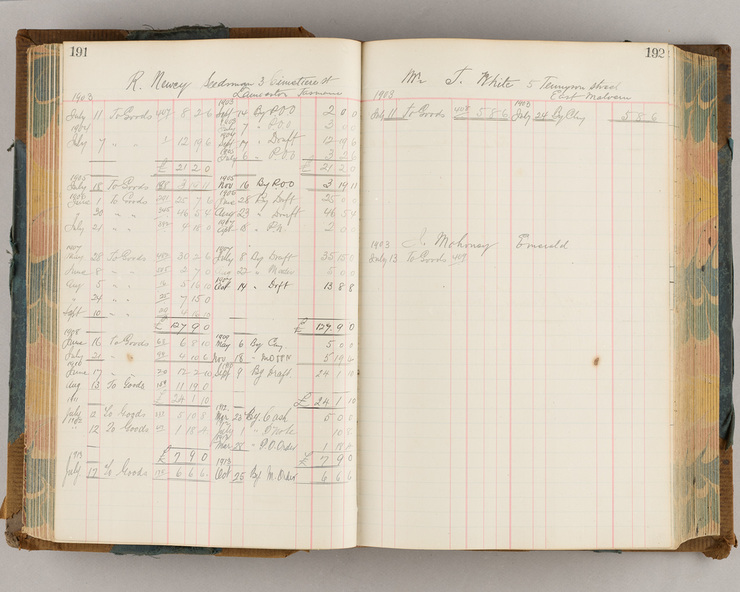 191
R. Newey Seedsman 3
Launceston Tasmania
1903
July 11 To Goods 407 8 2 6 Sept 14 By P.O.O 2 0 0
1904 July 7 P.O.O 2 0 0
July 7 " " 12 19 6 Sept 17 " Draft 12 19 6
July 6 " P.O.O 3 2 6
£ 21 2 0 £ 21 2 0
1905 1905
July 18 To Goods 3 19 11 Nov 16 By P.O.O 3 19 11
1906 1906
June 1 To Goods 25 7 6 June 28 By Draft 25 0 0
30 " " 46 5 4 Aug 23 " Draft 46 5 4
July 21 " " 4 18 0 Sept 18 " P.N. 2 0 0
1907 1907
May 28 To Goods 30 2 6 July 8 By Draft 35 15 0
June 8 " " 2 7 0 22 " 5 0 0
Aug 5 " " 5 16 10 Oct 14 " Dft 13 8 8
" 24 " " 7 15 0
Sept 10 " " 4 16 10
£ 127 9 0 £ 127 9 0
1908 1909
June 16 To Goods 6 8 10 May 6 By Chq. 5 0 0
July 21 " 4 10 6 Nov 18 " 5 19 4
1910
June 17 " 12 2 10 Sept 9 By Draft 24 1 10
Aug 13 To Goods 11 19 0
£ 24 1 10 £ 24 1 10
1911
July 11 To Goods 5 10 8 Mar 25 By Cash 5 0 0
" 12 To Goods 1 18 4 July 1 10
Mar " P.O. Order 1 18 4
£ 7 9 0 £ 7 9 0
1913 1913
July 17 To Goods 6 6 6 Oct 25 By M. Order 6 6 6
192
Mr J. White 5 Tennyson Street
East Malvern
1903 1903
July 11 To Goods 408 5 8 6 July 24 By Chq 5 8 6
1903 Mahoney Emerald
July 13 To Goods 409